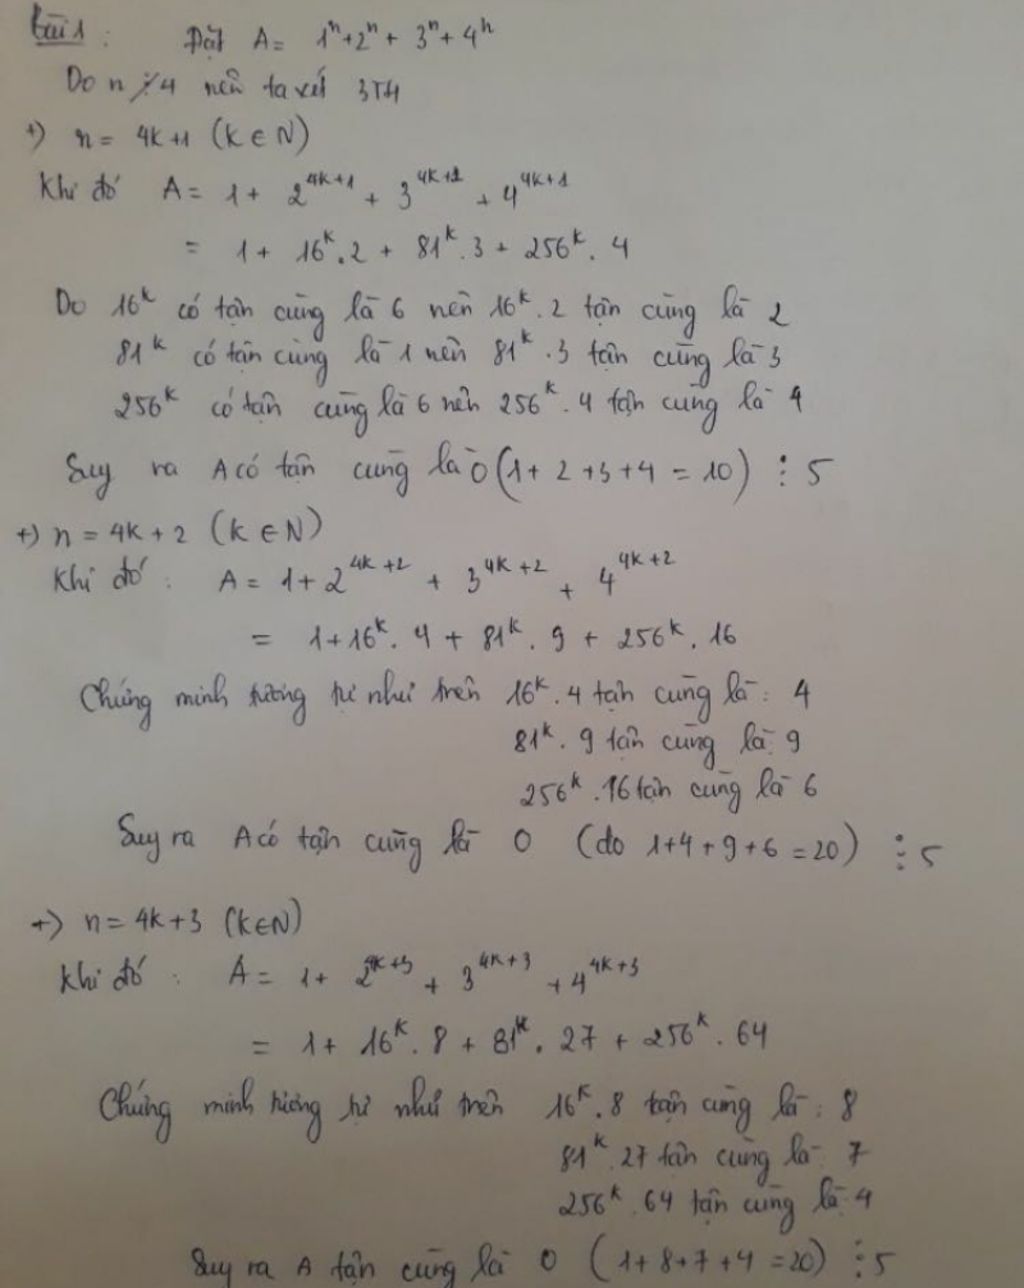 Bài 1 : Đặt A = 1ⁿ + 2ⁿ + 3ⁿ + 4ⁿ
Do n ⋮̸ 4 nên ta xét 3TH
+) n = 4k+1 (k ∈ N)
Khi đó A = 1 + 2^{4k+1} + 3^{4k+1} + 4^{4k+1}
= 1 + 16^k . 2 + 81^k . 3 + 256^k . 4
Do 16^k có tận cùng là 6 nên 16^k . 2 tận cùng là 2
81^k có tận cùng là 1 nên 81^k . 3 tận cùng là 3
256^k có tận cùng là 6 nên 256^k . 4 tận cùng là 4
Suy ra A có tận cùng là 0 (1 + 2 + 3 + 4 = 10) ⋮ 5
+) n = 4k + 2 (k ∈ N)
Khi đó : A = 1 + 2^{4k+2} + 3^{4k+2} + 4^{4k+2}
= 1 + 16^k . 4 + 81^k . 9 + 256^k . 16
Chứng minh tương tự như trên 16^k . 4 tận cùng là : 4
81^k . 9 tận cùng là : 9
256^k . 16 tận cùng là 6
Suy ra A có tận cùng là 0 (do 1+4+9+6 = 20) ⋮ 5
+) n = 4k+3 (k∈N)
Khi đó : A = 1 + 2^{4k+3} + 3^{4k+3} + 4^{4k+3}
= 1 + 16^k . 8 + 81^k . 27 + 256^k . 64
Chứng minh tương tự như trên 16^k . 8 tận cùng là : 8
81^k . 27 tận cùng là : 7
256^k . 64 tận cùng là : 4
Suy ra A tận cùng là 0 (1+8+7+4 = 20) ⋮ 5